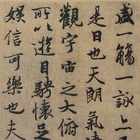 盛一觴一詠
是日也天朗氣
觀宇宙之大俯
所以遊目騁懷足
娛信可樂也夫